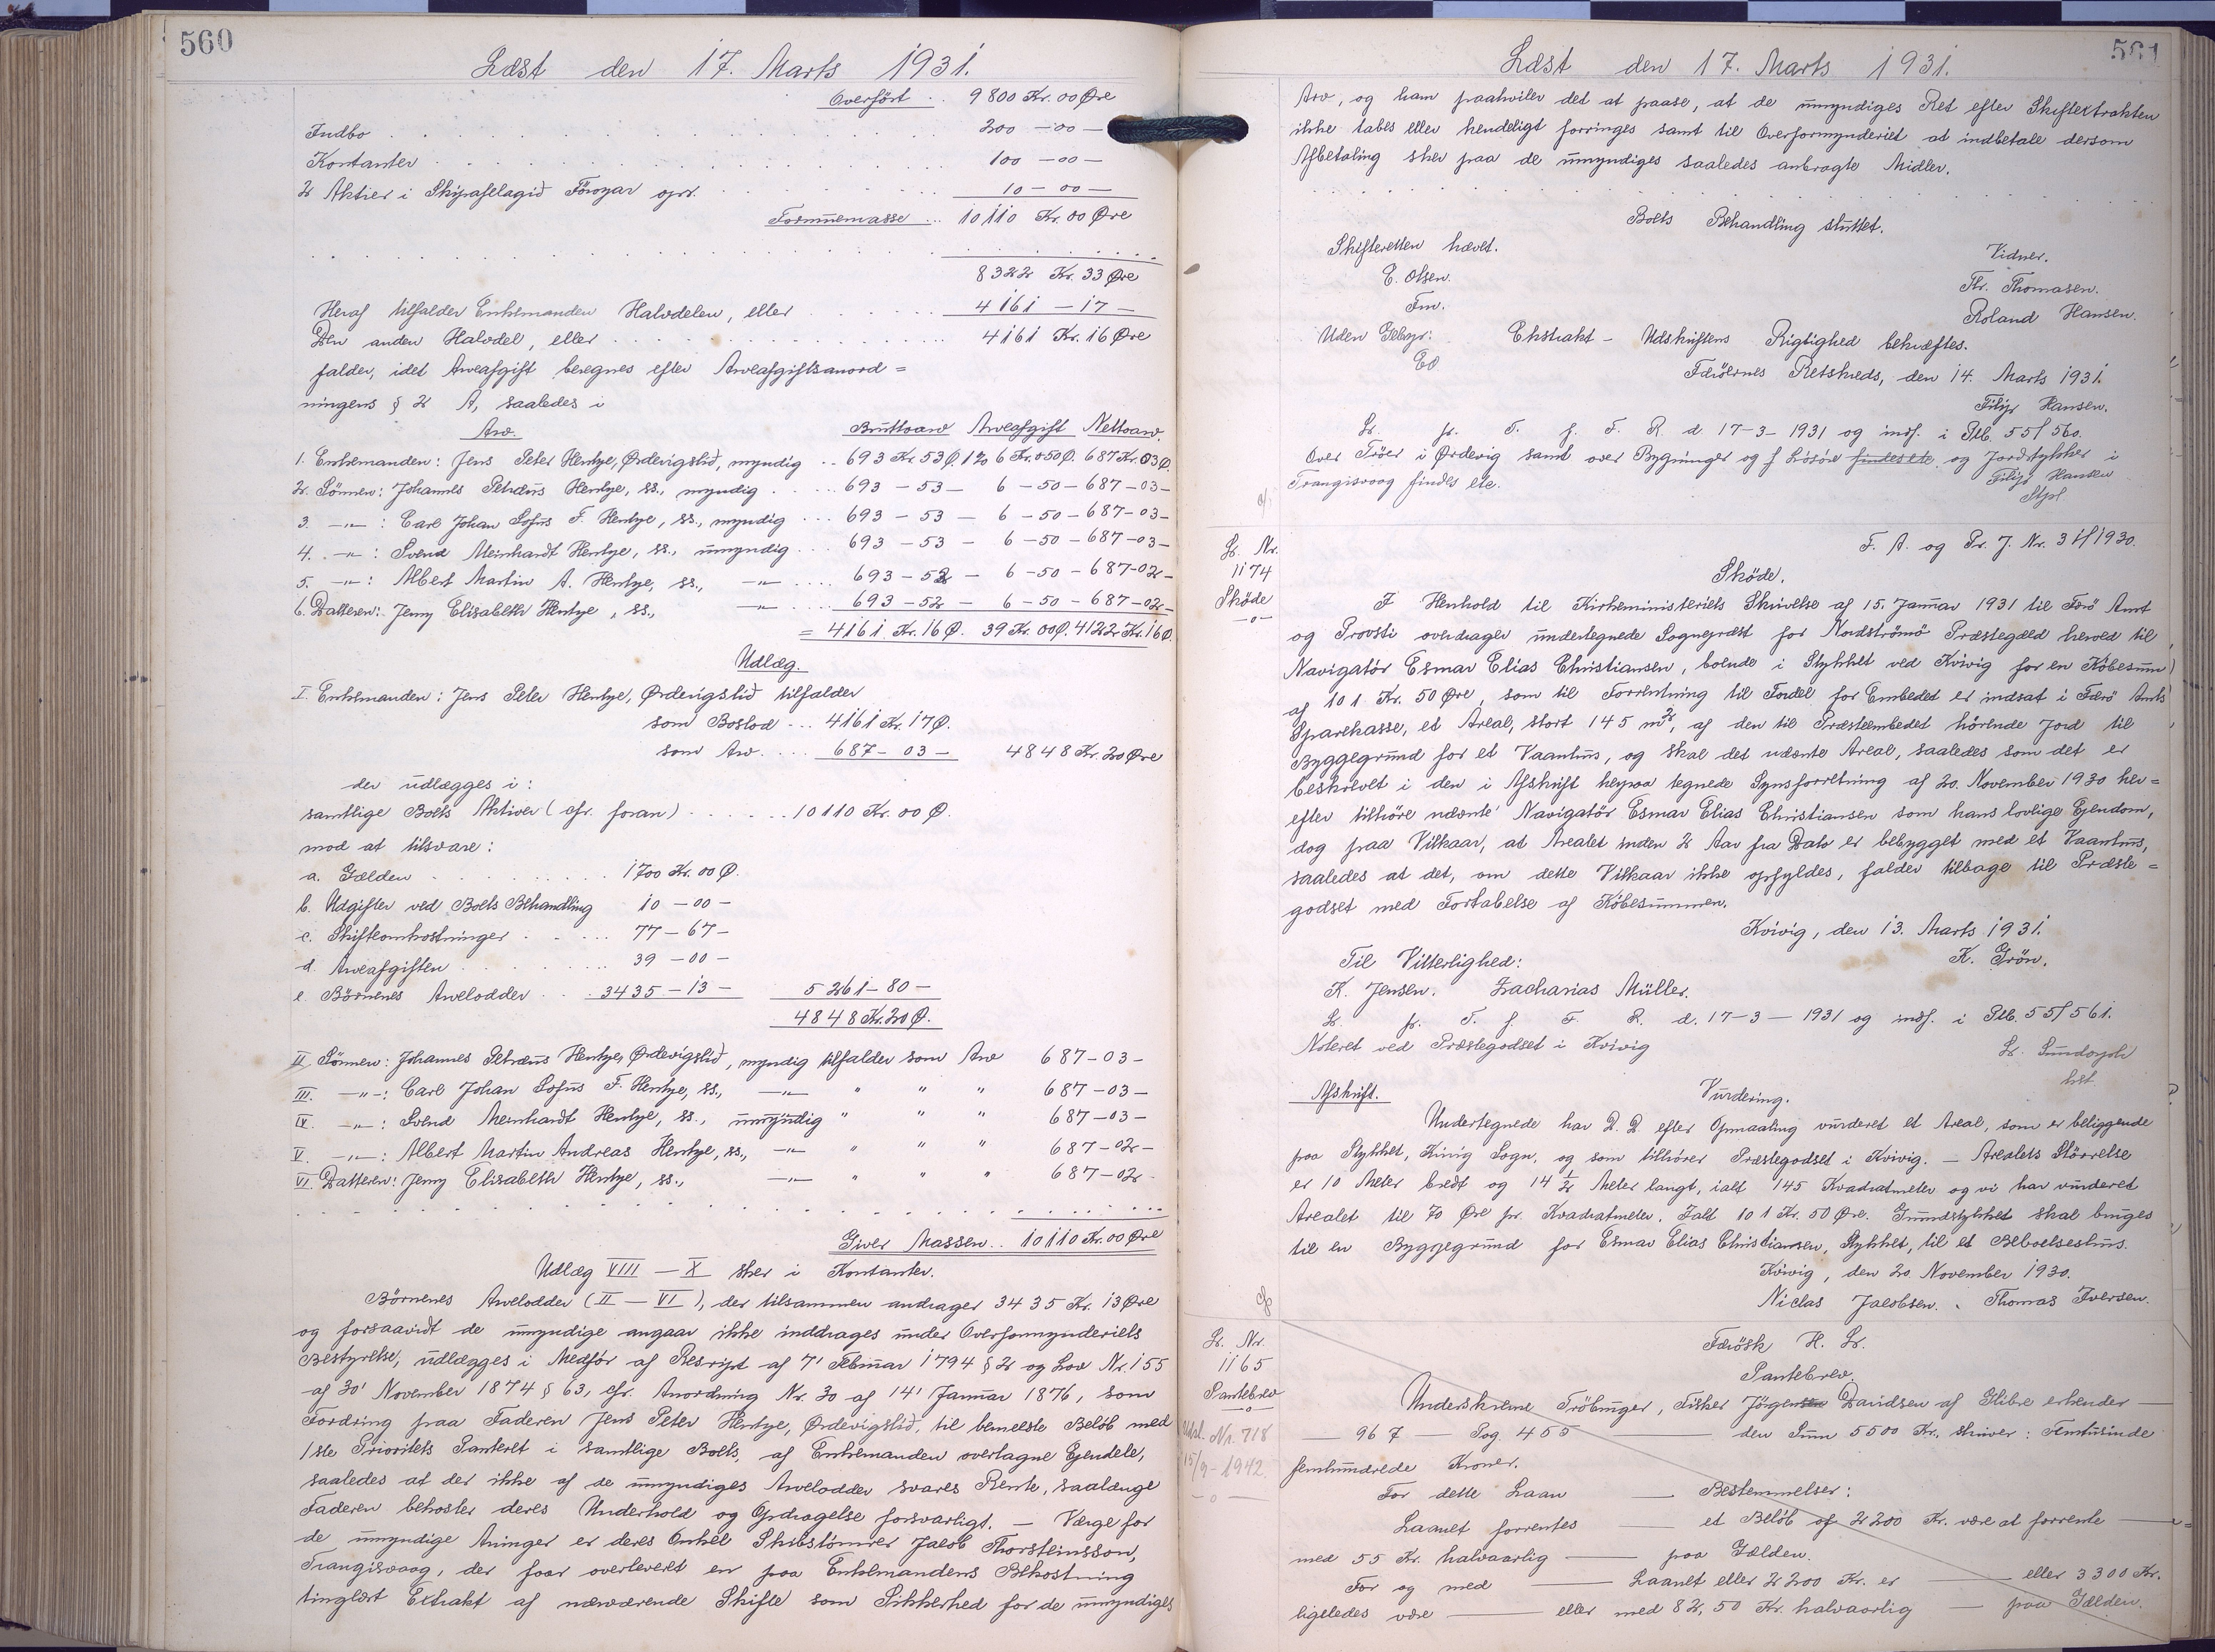 560
Læst den 17. Marts 1931.
Overført .. 9800 Kr. 00 Øre
Indbo . . . 200 - 00 -
Kontanter . . . 100 - 00 -
2 Aktier i Skipafelagið Föroyar opr. . . . 10 - 00 -
Formuemasse ... 10110 Kr. 00 Øre
8322 Kr. 33 Øre
Heraf tilfalder Enkemanden Halvdelen, eller . . . 4161 - 17 -
Den anden Halvdel, eller . . . 4161 Kr. 16 Øre
falder, idet Arveafgift beregnes efter Arveafgiftsanord=
ningens § 2 A, saaledes i
Arv. Bruttoarv Arveafgift Nettoarv.
1. Enkemanden: Jens Peter Hentze, Ørdevigslid, myndig .. 693 Kr 53 Ø. 1% 6 Kr. 050 Ø. 687 Kr. 03 Ø.
2. Sönnen: Johannes Petræus Hentze, ss., myndig . . . 693 - 53 - 6 - 50 - 687 - 03 -
3. -"- : Carl Johan Sofus F. Hentze, ss., myndig ... 693 - 53 - 6 - 50 - 687 - 03 -
4. -"- : Svend Meinhardt Hentze, ss., umyndig ... 693 - 53 - 6 - 50 - 687 - 03 -
5. -"- : Albert Martin A. Hentze, ss., -"- .... 693 - 52 - 6 - 50 - 687 - 02 -
6. Datteren: Jenny Elisabeth Hentze, ss., -"- .... 693 - 52 - 6 - 50 - 687 - 02 -
= 4161 Kr. 16 Ø. 39 Kr. 00 Ø. 4122 Kr. 16 Ø.
Udlæg.
I. Enkemanden: Jens Peter Hentze, Ørdevigslid tilfalder
som Boslod ... 4161 Kr. 17 Ø.
som Arv .... 687 - 03 - 4848 Kr. 20 Øre
der udlægges i:
samtlige Boets Aktiver (cfr. foran) . . . 10110 Kr. 00 Ø.
mod at tilsvare:
a. Gælden . . . 1700 Kr. 00 Ø.
b. Udgifter ved Boets Behandling 10 - 00 -
c. Skifteomkostninger . . . 77 - 67 -
d. Arveafgiften . . . 39 - 00 -
e. Börnenes Arvelodder . . . 3435 - 13 - 5261 - 80 -
4848 Kr. 20 Ø.
II Sönnen: Johannes Petræus Hentze, Ørdevigslid, myndig tilfalder som Arv 687 - 03 -
III. -"- : Carl Johan Sofus F. Hentze, ss., -"- " " " 687 - 03 -
IV. -"- : Svend Meinhardt Hentze, ss., umyndig " " " 687 - 03 -
V. -"- : Albert Martin Andreas Hentze, ss., -"- " " " 687 - 02 -
VI. Datteren: Jenny Elisabeth Hentze, ss., -"- " " " 687 - 02 -
Giver Massen .. 10110 Kr. 00 Øre
Udlæg VIII - X sker i Kontanter.
Börnenes Arvelodder (II - VI), der tilsammen andrager 3435 Kr. 13 Øre
og forsaavidt de umyndige angaar ikke inddrages under Overformynderiets
Bestyrelse, udlægges i Medför af Reskript af 7' Februar 1794 § 2 og Lov Nr. 155
af 30' November 1874 § 63, cfr. Anordning Nr. 30 af 14' Januar 1876, som
Fordring paa Faderen Jens Peter Hentze, Ørdevigslid, til bemeldte Belöb med
1ste Prioritets Panteret i samtlige Boets, af Enkemanden overtagne Ejendele,
saaledes at der ikke af de umyndiges Arvelodder svares Rente, saalænge
Faderen bekoster deres Underhold og Opdragelse forsvarligt. - Værge for
de umyndige Arvinger er deres Onkel Skibstömrer Jacob Thorsteinsson,
Trangisvaag, der faar overleveret en paa Enkemandens Bekostning
tinglæst Extrakt af nærværende Skifte som Sikkerhed for de umyndiges
561
Læst den 17. Marts 1931.
Arv, og ham paahviler det at paase, at de umyndiges Ret efter Skifteextrakten
ikke tabes eller hendeligt forringes samt til Overformynderiet at indbetale dersom
Afbetaling sker paa de umyndiges saaledes anbragte Midler.
Boets Behandling sluttet.
Skifteretten hævet.
Vidner.
E. Olsen. Fr. Thomasen.
Fm. Roland Hansen.
Uden Gebyr: Ekstrakt - Udskriftens Rigtighed bekræftes.
EO Færöernes Retskreds, den 14. Marts 1931.
Filip Hansen.
Lr. fr. T. f. F. R. d. 17-3-1931 og indf. i Ptb. 55/560.
Over Tröer i Ørdevig samt over Bygninger og f Lösöre findes etc. og Jordstykker i
Trangisvaag findes etc. Filip Hansen
Stpf
F. A. og Pr. J. Nr. 31/1930.
Lr. Nr.
1174
Sköde
-o-
Sköde.
I Henhold til Kirkeministeriets Skrivelse af 15. Januar 1931 til Færö Amt
og Provsti overdrager undertegnede Sognepræst for Nordströmö Præstegæld herved til
Navigatör Esmar Elias Christiansen, boende i Stykket ved Kvivig for en Köbesum
af 101 Kr. 50 Øre, som til Forrentning til Fordel for Embedet er indsat i Færö Amts
Sparekasse, et Areal, stort 145 m², af den til Præsteembedet hörende Jord til
Byggegrund for et Vaanhus, og skal det nævnte Areal, saaledes som det er
beskrevet i den i Afskrift herpaa tegnede Synsforretning af 20. November 1930 her=
efter tilhöre nævnte Navigatör Esmar Elias Christiansen som hans lovlige Ejendom,
dog paa Vilkaar, at Arealet inden 2 Aar fra Dato er bebygget med et Vaanhus,
saaledes at det, om dette Vilkaar ikke opfyldes, falder tilbage til Præste=
godset med Fortabelse af Köbesummen.
Kvivig, den 13. Marts 1931.
Til Vitterlighed: K. Grön.
K. Jensen. Zacharias Müller.
Lr. fr. T. f. F. R. d. 17-3-1931 og indf. i Ptb. 55/561.
Noteret ved Præstegodset i Kvivig
Afskrift. Vurdering.
Undertegnede har D. D. efter Opmaaling vurderet et Areal, som er beliggende
paa Stykket, Kvivig Sogn, og som tilhörer Præstegodset i Kvivig. - Arealets Störrelse
er 10 Meter bredt og 14 1/2 Meter langt, ialt 145 Kvadratmeter og vi har vurderet
Arealet til 70 Øre pr. Kvadratmeter. Ialt 101 Kr. 50 Øre. Grundstykket skal bruges
til en Byggegrund for Esmar Elias Christiansen, Stykket, til et Beboelseshus.
Kvivig, den 20. November 1930.
Niclas Jacobsen. Thomas Iversen.
Lr. Nr.
1165
Pantebrev
-o-
Udsl. Nr. 718
15/9-1942
-o-
Færösk H. Lr.
Pantebrev.
Underskrevne Tröbruger, Fisker Jörgensen Davidsen af Glibre erkender -
- 967 - Pag. 455 - den Sum 5500 Kr., skriver: Femtusinde
femhundrede Kroner.
For dette Laan - Bestemmelser:
Laanet forrentes - et Belöb af 2200 Kr. være at forrente -
med 55 Kr. halvaarlig - paa Gælden.
For og med - Laanet eller 2200 Kr. er - eller 3300 Kr.
ligeledes være - eller med 82,50 Kr. halvaarlig - paa Gælden.